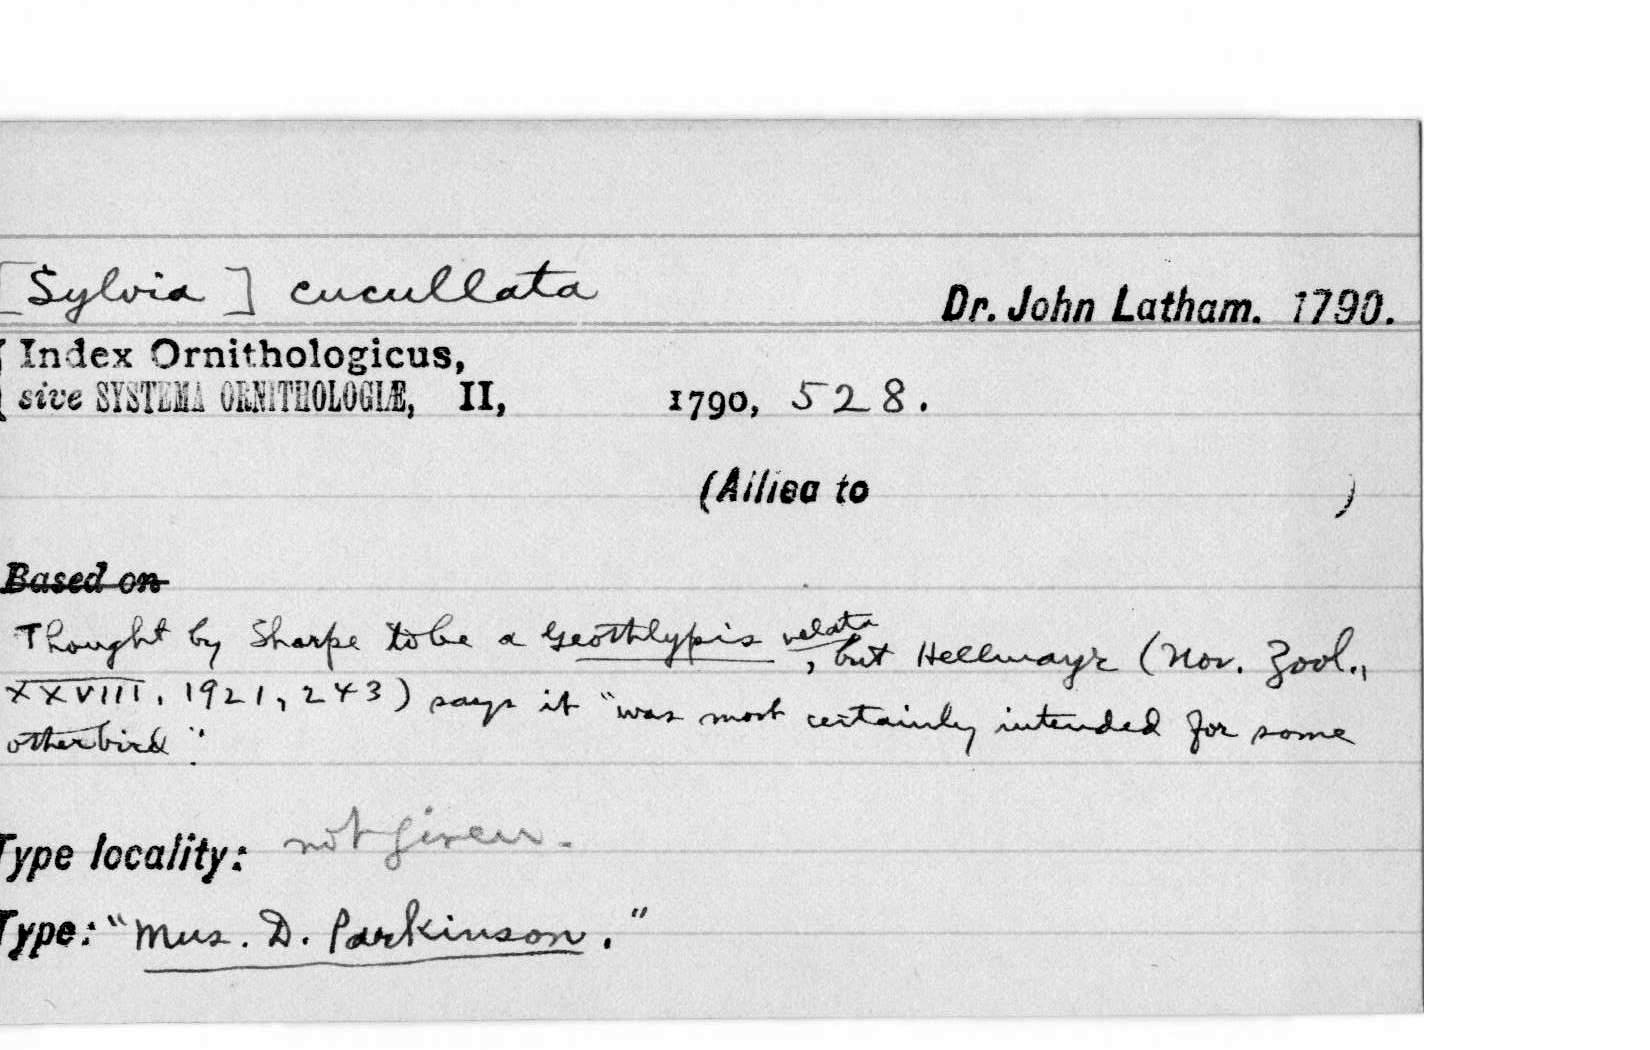 [Sylvia] cucullata
Dr. John Latham. 1790.
Index Ornithologicus,
sive SYSTEMA ORNITHOLOGIÆ, II, 1790, 528.
(Allied to )
Based on
Thought by Sharpe to be a Geothlypis velata, but Hellmayr (Nov. Zool.,
XXVIII, 1921, 243) says it "was most certainly intended for some
other bird".
Type locality: not given.
Type: "Mus. D. Parkinson."